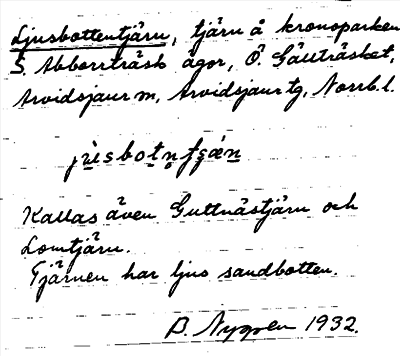 Ljusbottentjärn, tjärn å kronoparken
S. Abborrträsk ägor, Ö. Gautträsket,
Arvidsjaur sn, Arvidsjaur tg, Norrb. l.
Kallas även Guttnästjärn och
Lomtjärn.
Tjärnen har ljus sandbotten.
B. Nygren 1932.